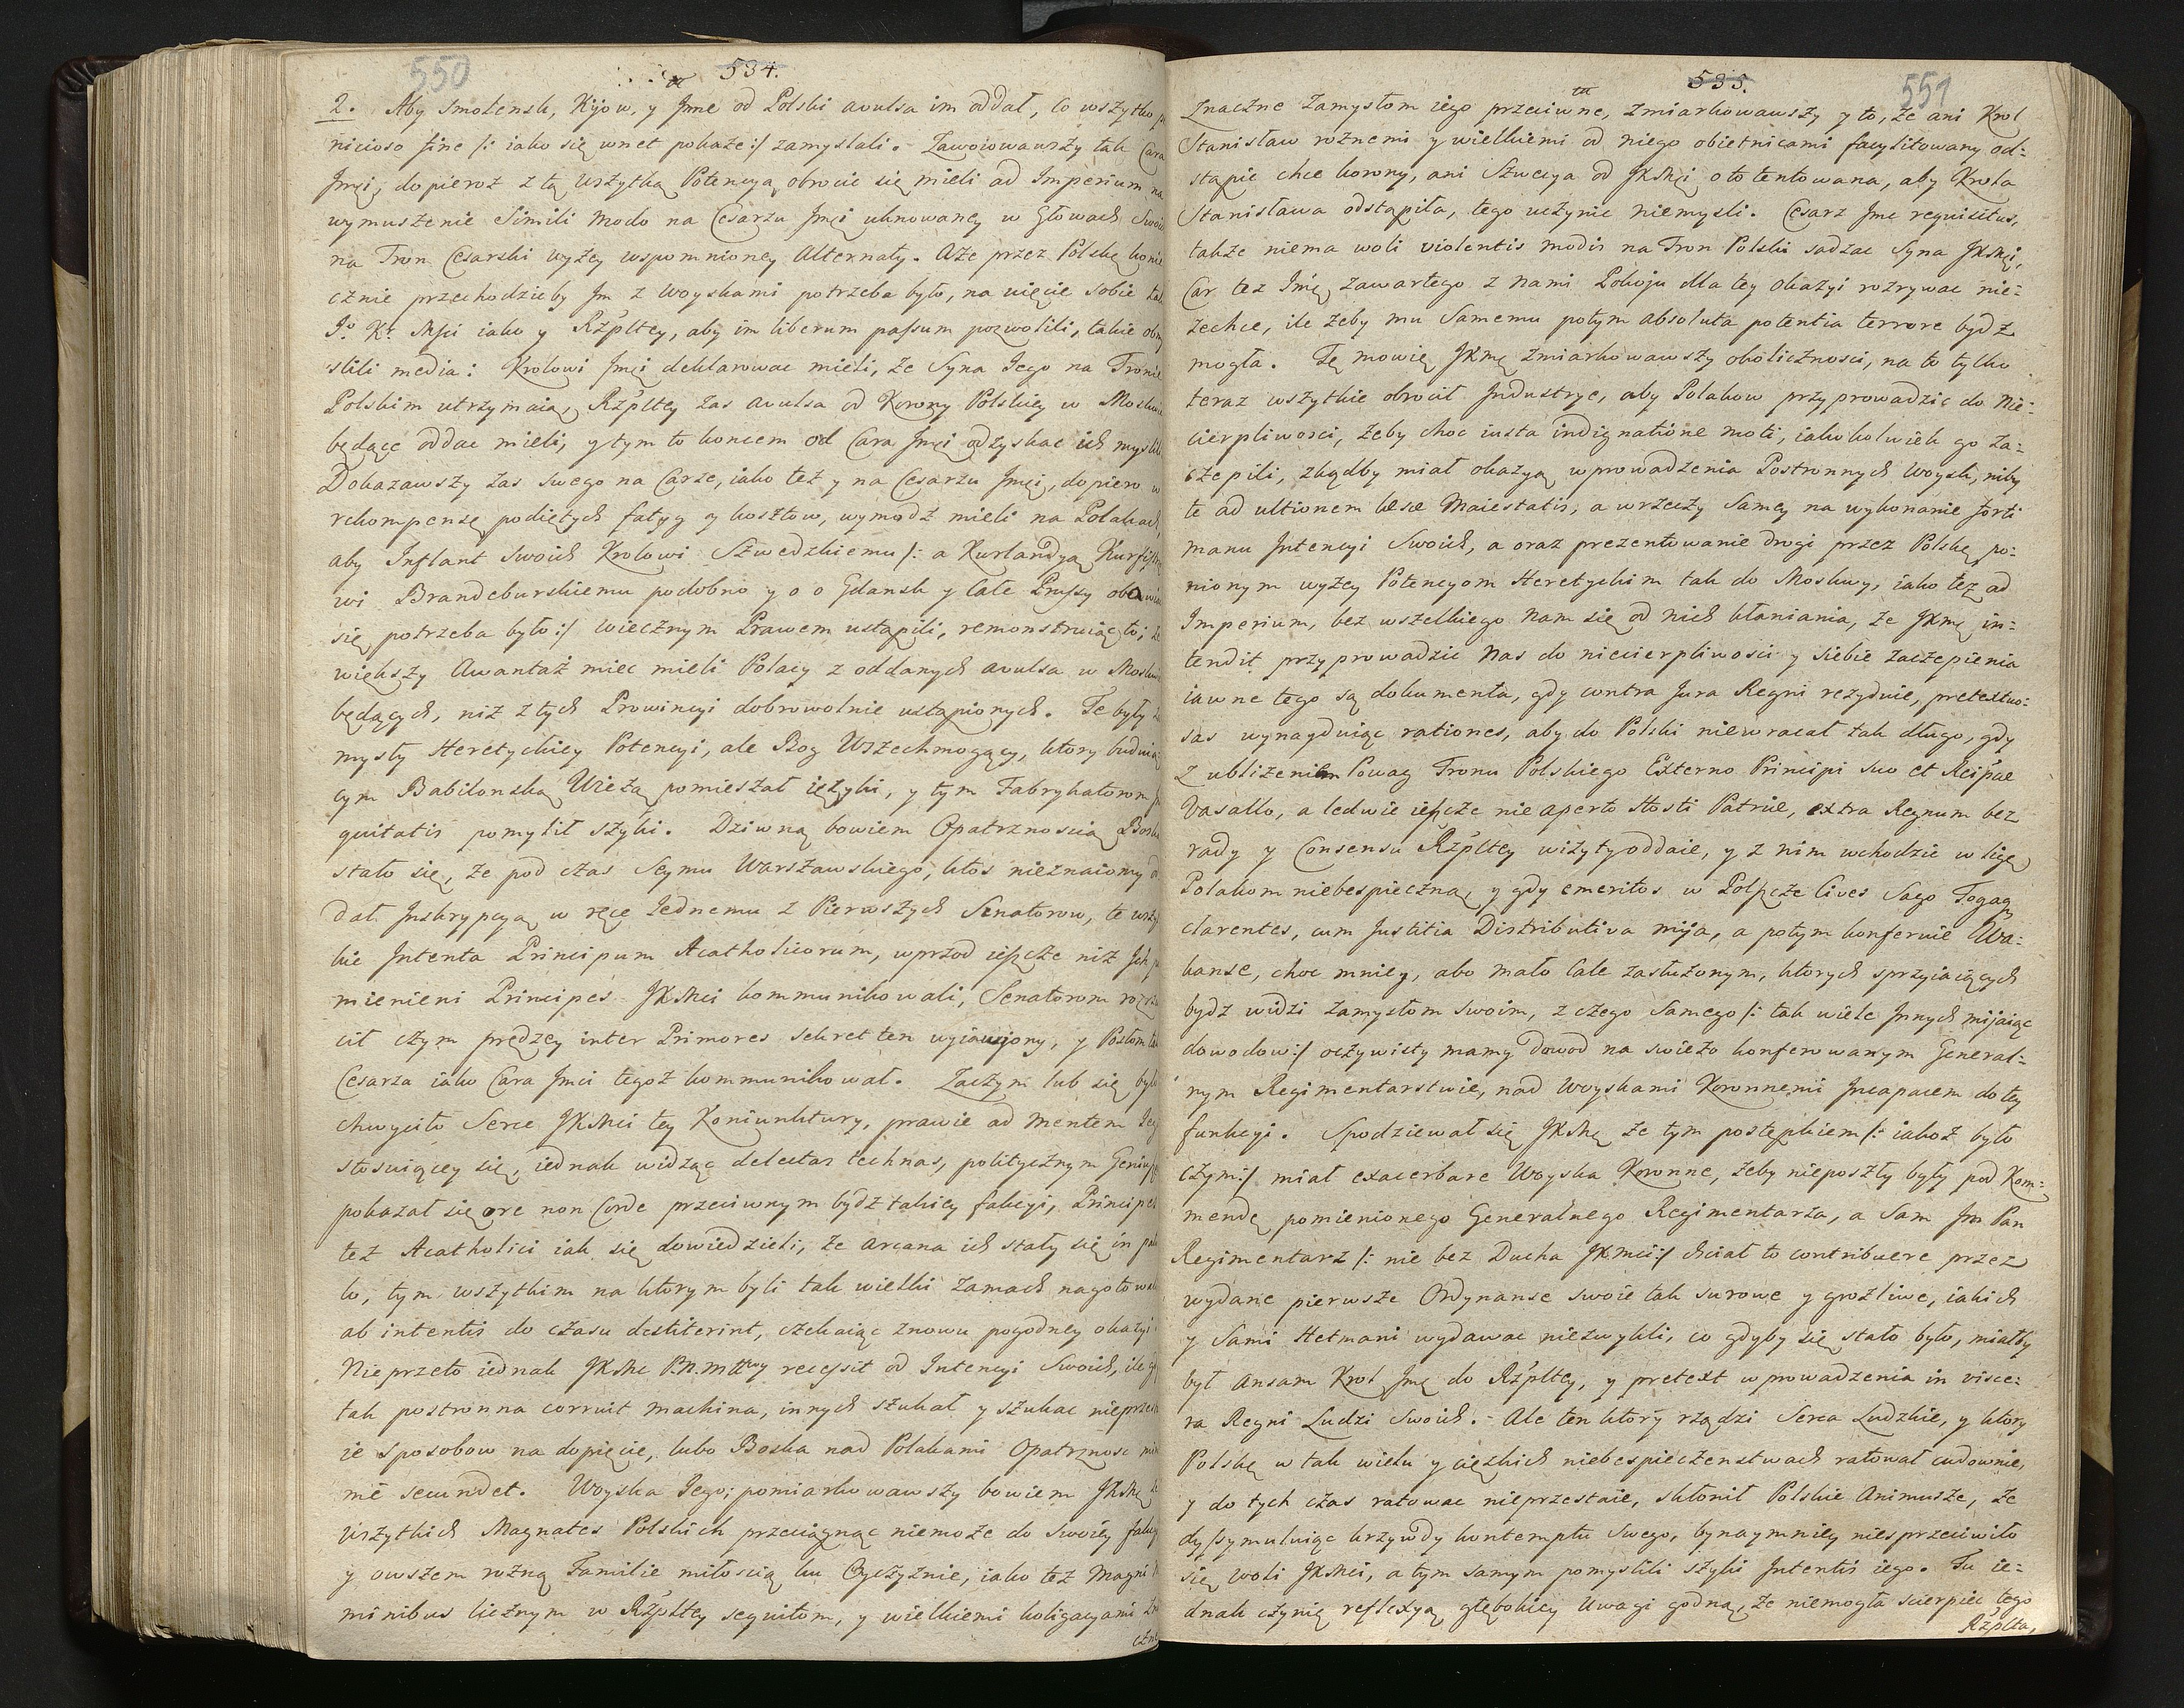 550
534.
2. Aby Smolensk, Kijow, y Inne od Polski avulsa im oddał, co wszytko
nicioso fine /: iako się wnet pokaże :/ zamyslali. Zawoiowawszy tak Cara
Jmci, dopieroż z tą wszytką Potencyą obrocic się mieli ad Imperium na
wymuszenie Simili modo na Cesarzu Jmci uknowaney w Głowach Swoich
na Tron Cesarski wyżey wspomnioney Alternaty. Aże przez Polskę konie
cznie przechodzicby Im z woyskami potrzeba było, na uięcie sobie tak
Jo. Kr. Mści iako y Rzpltey, aby im liberum passum pozwolili, takie obmy
slili media: Krolowi Jmci deklarowac mieli, że Syna Jego na Tronie
Polskim utrzymaią, Rzpltey zas avulsa od Korony Polskiey w Moskwie
będące oddac mieli, y tym to koncem od Cara Jmci odzyskac ich myslili
Dokazawszy zas swego na Carze, iako też y na Cesarzu Jmci, dopiero w
rekompensę podiętych fatyg y kosztow, wymodz mieli na Polakach,
aby Inflant Swoich Krolowi Szwedzkiemu /: a Kurlandyą Kurfistro
wi Brandeburskiemu podobno y o o Gdansk y całe Prussy obawiac
się potrzeba było :/ wiecznym Prawem ustąpili, remonstruiąc to; że
większy Awantaż miec mieli Polacy z oddanych avulsa w Moskwie
będących, niż z tych Prowincyi dobrowolnie ustąpionych. Te były za
mysły Heretyckiey Potencyi, ale Bog Wszechmogący, ktory buduią
cym Babilonską Wieżą pomieszał ięzyki, y tym Fabrykatorom
quitatis pomylił szyki. Dziwną bowiem Opatrznoscią Boską
stało się, że pod czas Seymu Warszawskiego, ktos nieznaiomy od
dał Inskrypcyą w ręce Jednemu z Pierwszych Senatorow, te wszy
kie Intenta Principum Acatholicorum, wprzod ieszcze niż Ich
mienieni Principes JKMci kommunikowali, Senatorom
cił czym prędzey inter Primores sekret ten wyiawiony, y Posłom tak
Cesarza iako Cara Jmci tegoż kommunikował. Zaczym lub się było
chwyciło Serce JKMci tey Koniunktury, prawie ad mentem Jego
stosuiącey się, iednak widząc detectas technas, politycznym Geniuszem
pokazał się ore non Corde przeciwnym bydz takiey fakcyi, Principes
też Acatholici iak się dowiedzieli, że arcana ich stały się in
lo, tym wszytkim na ktorym byli tak wielki zamach nagotowali
ab intentis do czasu destiterint, czekaiąc znowu pogodney okazyi.
Nieprzeto iednak JKMc P.N.Mttwy recessit od Intencyi Swoich, ile gdy
tak postronna corruit machina, innych szukał y szukac nieprzesta
ie sposobow na dopięcie, lubo Boska nad Polakami Opatrznosc
me secundet. Woyska Jego; pomiarkowawszy bowiem JKMc że
wszytkich Magnates Polskich przeciągnąc niemoże do swoiey fakcyi
y owszem rożną Familie miłoscią ku Oyczyznie, iako też Magni No
minibus licznym w Rzpltey sequitom, y wielkiemi koligacyami
czne
551
535.
Znaczne zamysłom iego przeciwne, zmiarkowawszy y to, że ani Krol
Stanisław rożnemi y wielkiemi od niego obietnicami facylitowany od=
stąpic chce korony, ani Szwecya od JKMci o to tentowana, aby Krola
Stanisława odstąpiła, tego uczynic niemysli. Cesarz Jmc requisitus,
także niema woli violentis modis na Tron Polski sadzac Syna JKMci,
Car też Jmc zawartego z nami Pokoju dla tey okazyi rozrywac nie=
zechce, ile żeby mu Samemu potym absoluta potentia terrore bydz
mogła. Tę mowię JKMc zmiarkowawszy okolicznosci, na to tylko
teraz wszytkie obrocił Industrye, aby Polakow przyprowadzic do nie=
cierpliwosci, żeby choc iusta indignatione moti, iakokolwiek go za=
czepili, zkądby miał okazyą wprowadzenia Postronnych Woysk, niby
te ad ultionem læsæ Maiestatis, a wrzeczy samey na wykonanie forti
manu Intencyi Swoich, a oraz prezentowanie drogi przez Polskę po=
nionym wyżey Potencyom Heretyckim tak do Moskwy, iako też ad
Imperium, bez wszelkiego nam się od nich kłaniania, że JKMc in=
tendit przyprowadzic nas do niecierpliwosci y siebie zaczepienia
iawne tego są dokumenta, gdy contra Jura Regni rezyduie, pretextuo=
sas wynayduiąc rationes, aby do Polski niewracał tak długo, gdy
z ubliżeniem Powag Tronu Polskiego Externo Principi suo et Reipcae
Vasallo, a ledwie ieszcze nie aperto Hosti Patriæ, extra Regnum bez
rady y Consensu Rzpltey wizyty oddaie, y z nim wchodzic w ligę
Polakom niebespieczną, y gdy emeritos w Polszcze Cives Sago Togaq
clarentes, cum Justitia Distributiva mija, a potym konferuie Wa=
kanse, choc mniey, abo mało całe zasłużonym, ktorych sprzyiaiących
bydz widzi zamysłom swoim, z czego samego /: tak wiele Innych mijaiąc
dowodow :/ oczywisty mamy dowod na swieżo konferowanym General=
nym Regimentarstwie, nad woyskami Koronnemi Incapacem do tey
funkcyi. Spodziewał się JKMc że tym postępkiem /: iakoż było
czym :/ miał exacerbare Woyska Koronne, żeby nieposzły były pod Kom=
mendę pomienionego Generalnego Regimentarza, a Sam Jm Pan
Regimentarz /: nie bez Ducha JKMci :/ chciał to contribuere przez
wydane pierwsze Ordynanse swoie tak surowe y grozliwe, iakich
y Sami Hetmani wydawac niezwykli, co gdyby się stało było, miałby
był ansam Krol Jmc do Rzpltey, y pretext wprowadzenia in visce=
ra Regni Ludzi Swoich. - Ale ten ktory rządzi Serca Ludzkie, y ktory
Polskę w tak wielu y cięzkich niebespieczenstwach ratował cudownie,
y do tych czas ratowac nieprzestaie, skłonił Polskie Animusze, że
dyssymuluiąc krzywdy kontemptu swego, bynaymniey niesprzeciwiło
się woli JKMci, a tym samym pomyslili szyki Intentis iego. Tu ie=
dnak czynię reflexyą głębokiey uwagi godną, że niemogła scierpiec tego
Rzplta,